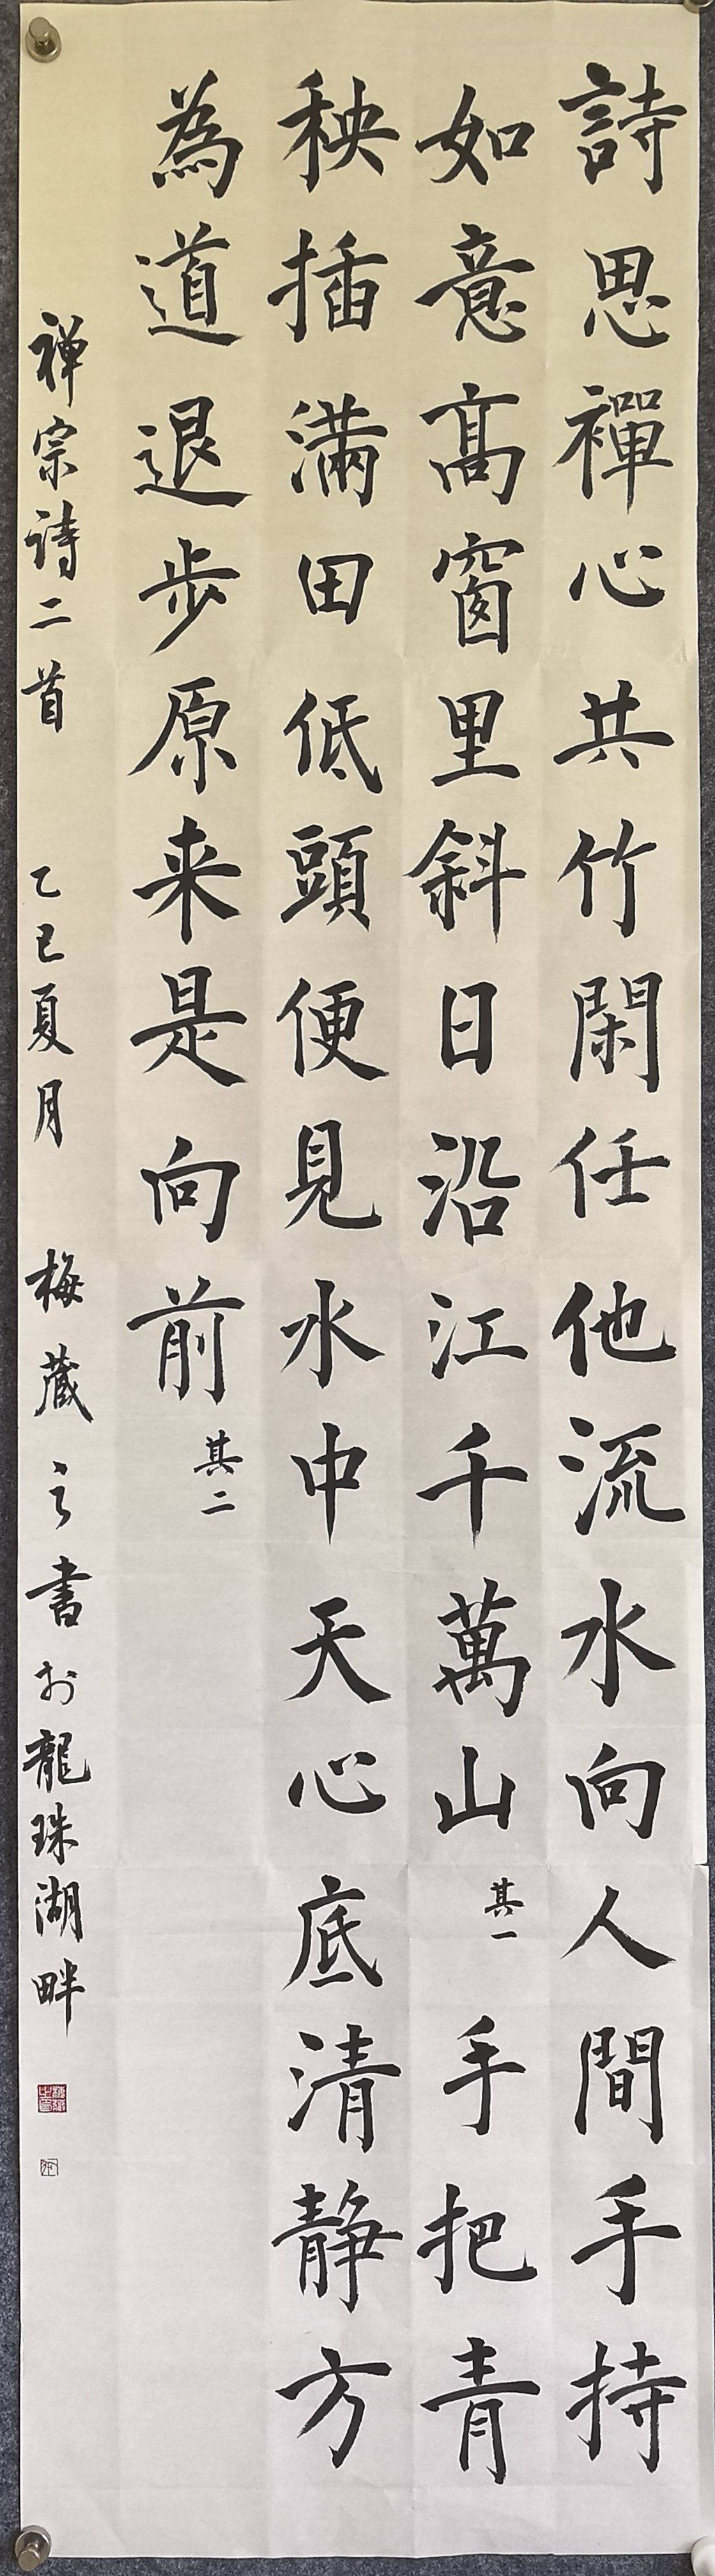 詩思禪心共竹閑任他流水向人間手持
如意高窗里斜日沿江千萬山其一手把青
秧插滿田低頭便見水中天心底清靜方
為道退步原来是向前其二
禅宗诗二首 乙巳夏月 梅藏之書於龍珠湖畔